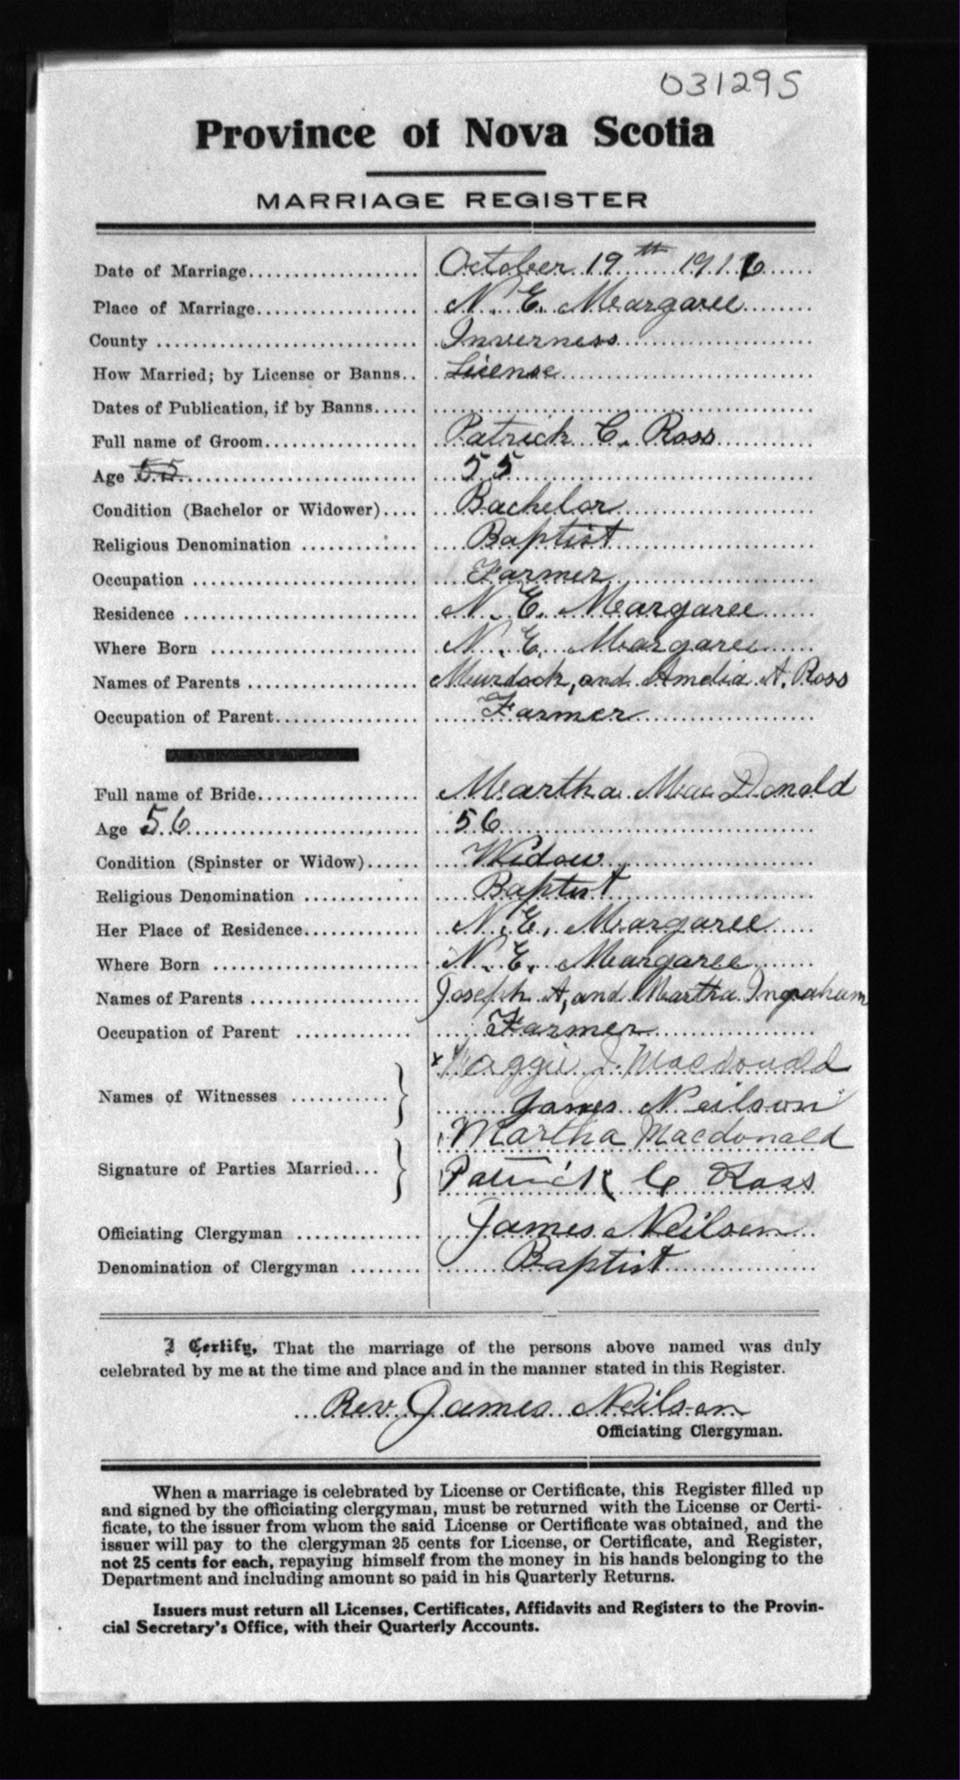 031295
Province of Nova Scotia
MARRIAGE REGISTER
Date of Marriage.................... October 19th 1916
Place of Marriage................... N. E. Margaree
County .............................. Inverness
How Married; by License or Banns.. License
Dates of Publication, if by Banns.....
Full name of Groom.................. Patrick C. Ross
Age 55 55
Condition (Bachelor or Widower).... Bachelor
Religious Denomination ............ Baptist
Occupation ......................... Farmer
Residence .......................... N. E. Margaree
Where Born ........................ N. E. Margaree
Names of Parents .................. Murdock, and Amelia A. Ross
Occupation of Parent............... Farmer
Full name of Bride.................. Martha Mac Donald
Age 56 56
Condition (Spinster or Widow)...... Widow
Religious Denomination ............ Baptist
Her Place of Residence............. N. E. Margaree
Where Born ........................ N. E. Margaree
Names of Parents .................. Joseph A, and Martha Ingraham
Occupation of Parent .............. Farmer
x Maggie J. Macdonald
Names of Witnesses ...........
James Neilson
Martha Macdonald
Signature of Parties Married...
Patrick C Ross
Officiating Clergyman .............. James Neilson
Denomination of Clergyman ........ Baptist
I Certify, That the marriage of the persons above named was duly
celebrated by me at the time and place and in the manner stated in this Register.
Rev. James Neilson
Officiating Clergyman.
When a marriage is celebrated by License or Certificate, this Register filled up
and signed by the officiating clergyman, must be returned with the License or Certi-
ficate, to the issuer from whom the said License or Certificate was obtained, and the
issuer will pay to the clergyman 25 cents for License, or Certificate, and Register,
not 25 cents for each, repaying himself from the money in his hands belonging to the
Department and including amount so paid in his Quarterly Returns.
Issuers must return all Licenses, Certificates, Affidavits and Registers to the Provin-
cial Secretary's Office, with their Quarterly Accounts.